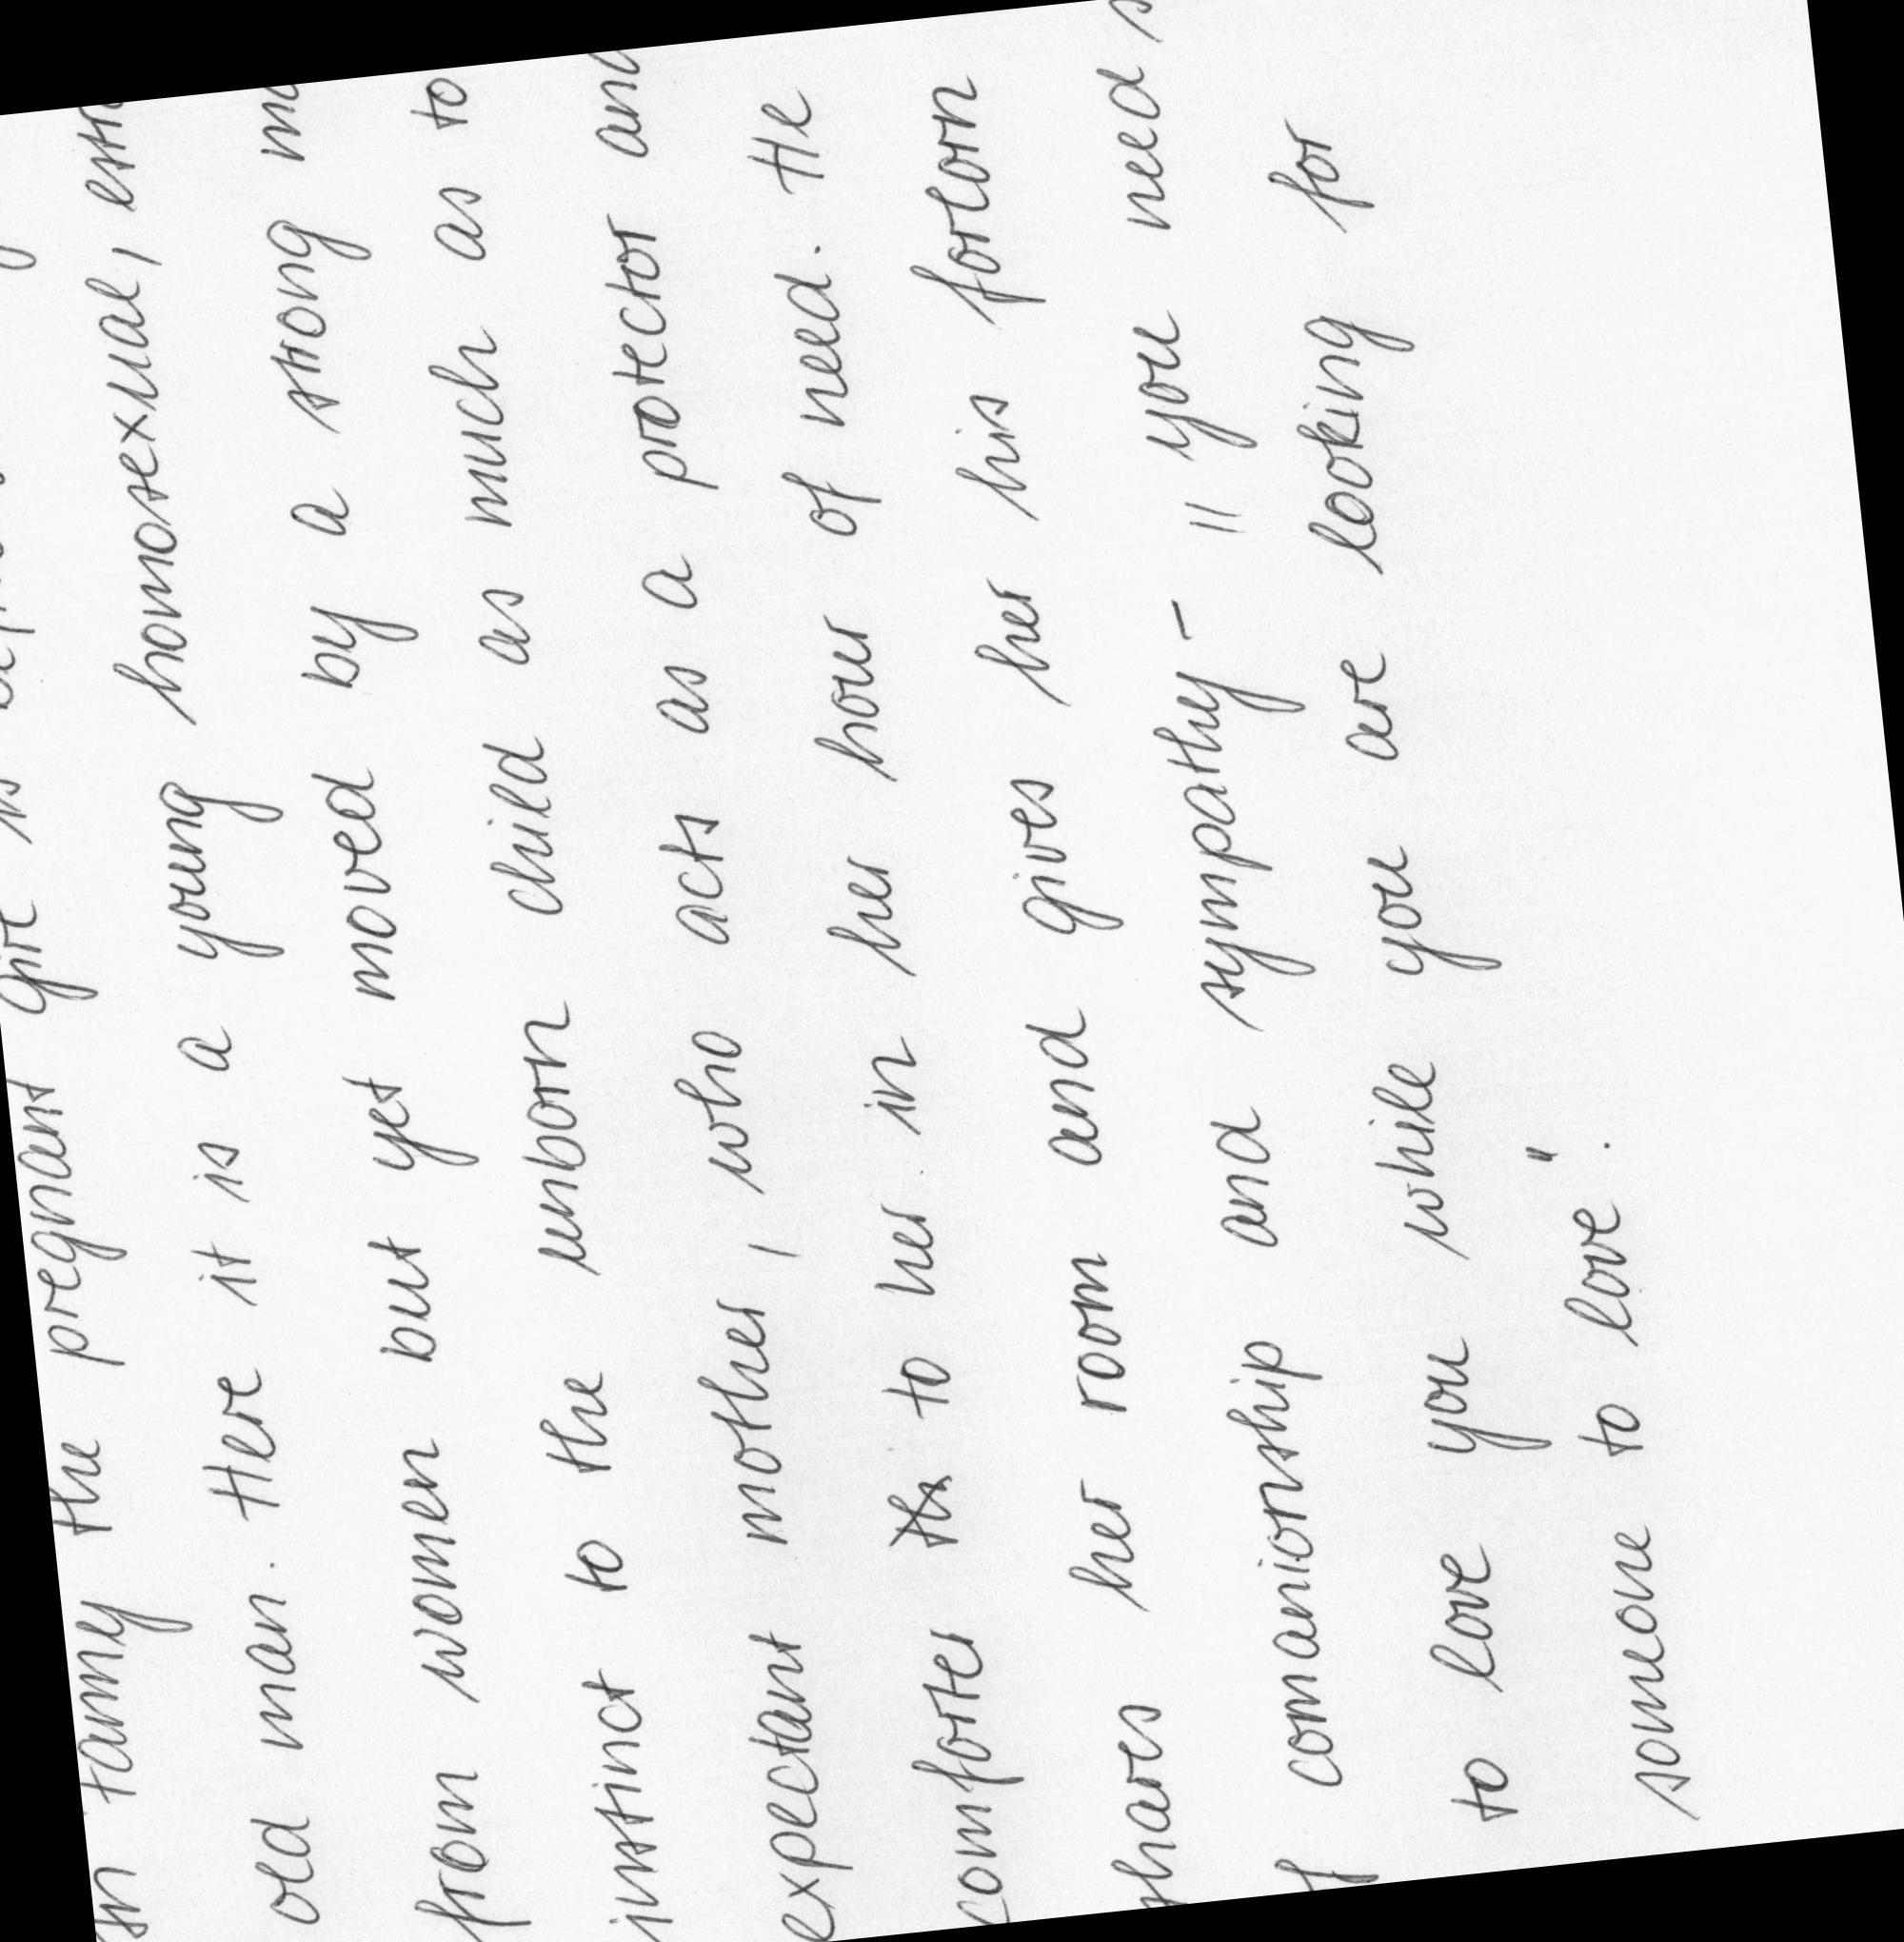 girl is
the pregnant
old man. Here it is a young homosexual,
from women but yet moved by a strong
instinct to the unborn child as much as to
expectant mother, who acts as a protector and
comforter to her in her hour of need. He
shares her room and gives her his forlorn
comanionship and sympathy - " you need
to love you while you are looking for
someone to love".